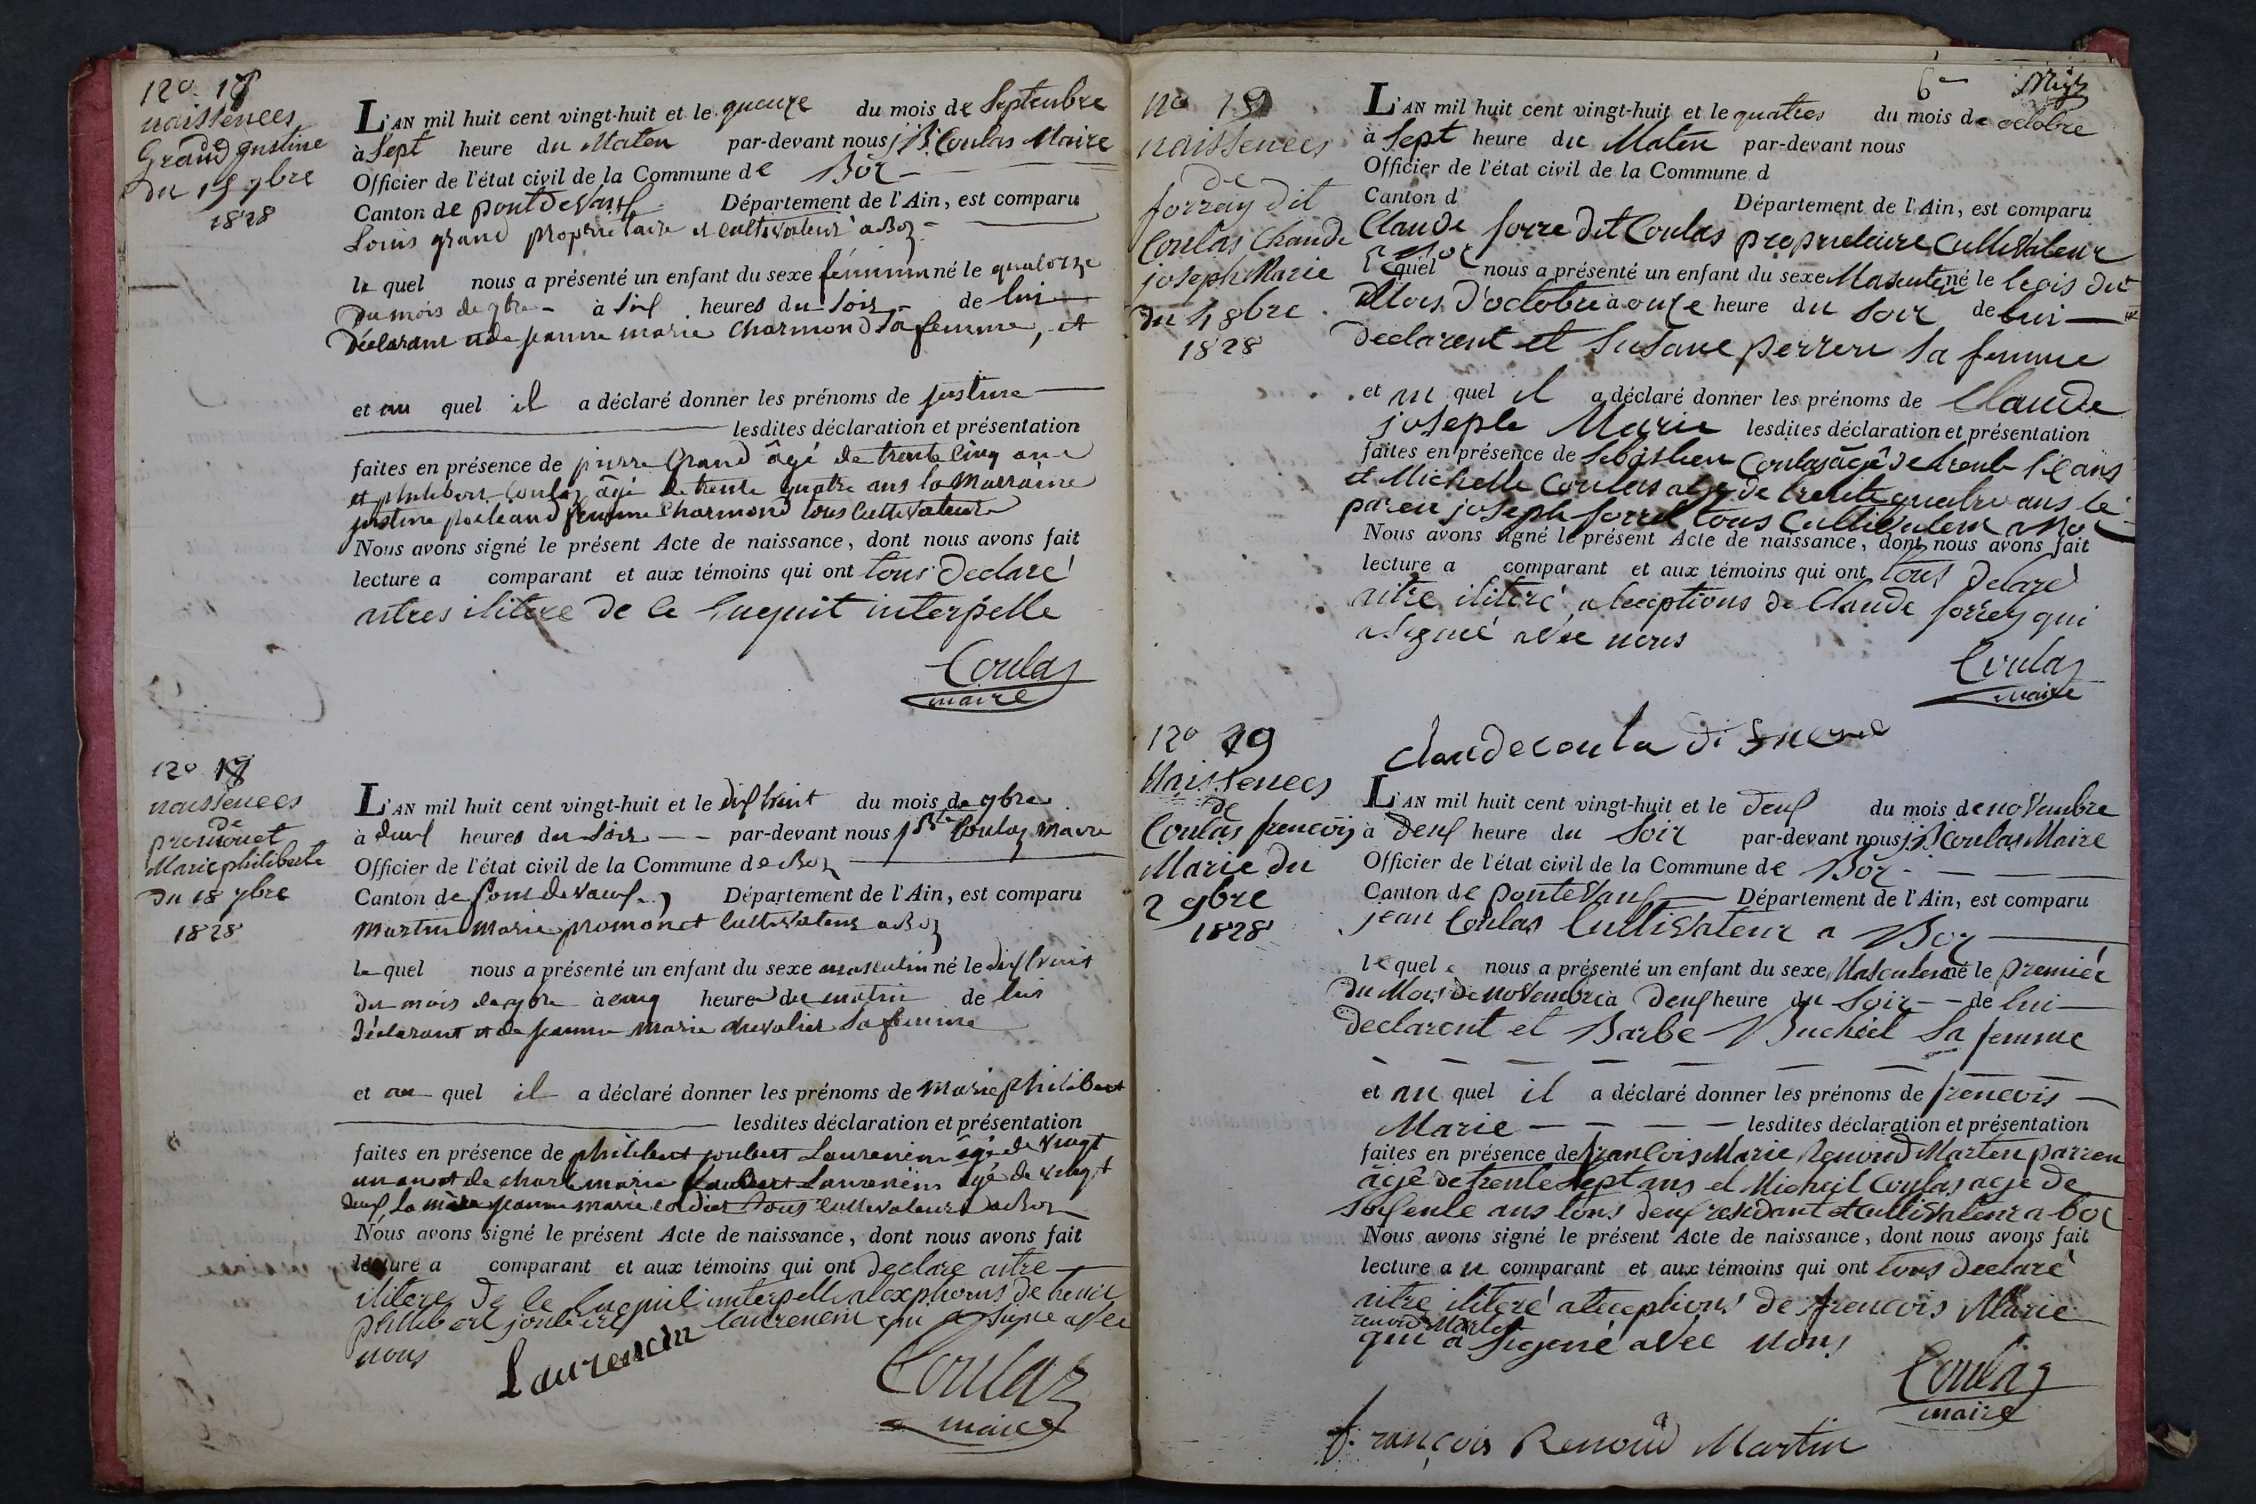 naissences
Grand justine
du 15 7bre
1828
L'AN mil huit cent vingt-huit et le quenze du mois de Septenbre
à Sept heure du Maten par-devant nous j B. Coulas Maire
Officier de l'état civil de la Commune de Boz
Canton de pont de Vaux Département de l'Ain, est comparu
Louis grand propriétaire et cultivateur à Boz
le quel nous a présenté un enfant du sexe féminin né le quatorze
du mois de 7bre à six heures du soir de lui
déclarant et de jeanne marie Charmond sa femme, et
et au quel il a déclaré donner les prénoms de justine
lesdites déclaration et présentation
faites en présence de pierre Grand âgé de trente cinq ans
et philibert Coulas âgé de trente quatre ans la Marraine
justine femme Charmond tous cultivateurs
Nous avons signé le présent Acte de naissance, dont nous avons fait
lecture a comparant et aux témoins qui ont tous declaré
aitres ilitere de ce enquit interpelle
Coulas
maire
naissences
de
promonet
Marie philiberte
du 18 7bre
1828
L'AN mil huit cent vingt-huit et le dix huit du mois de 7bre
à deux heures du soir par-devant nous j Bte Coulas Maire
Officier de l'état civil de la Commune de Boz
Canton de pont de vaux Département de l'Ain, est comparu
Martin Marie promonet cultivateur a Boz
le quel nous a présenté un enfant du sexe masculin né le dix huit
du mois de 7bre à cinq heures du matin de lui
déclarant et de jeanne marie chevalier sa femme
et au quel il a déclaré donner les prénoms de Marie philibert
lesdites déclaration et présentation
faites en présence de philibert joubert Laurencin âgé de vingt
un ans et de charle marie Laurencin âgé de vingt
deux la jeanne marie cordier tous cultivateurs a Boz
Nous avons signé le présent Acte de naissance, dont nous avons fait
lecture a comparant et aux témoins qui ont declare aitre
ilitere de ce enquit interpelle alexptions de
philibert joubert laurencin qui a signe avec
nous
Laurencin
Coulaz
maire
6e
no 19
naissences
de
forray dit
Coulas Claude
joseph Marie
du 4 8bre
1828
L'AN mil huit cent vingt-huit et le quatres du mois de octobre
à Sept heure du Maten par-devant nous
Officier de l'état civil de la Commune d
Canton d Département de l'Ain, est comparu
Claude forre dit Coulas proprietaire Cultivateur
a Boz
le quel nous a présenté un enfant du sexe Masculen né le trois du
Mois d'octobre à onze heure du soir de lui
declarent et Susane perren sa femme
et au quel il a déclaré donner les prénoms de Claude
joseph Marie lesdites déclaration et présentation
faites en présence de Sebastien Coulas âgé de trente six ans
et Michelle Coulas age de trente quatre ans le
paren joseph forrel tous Cultivateur a Boz
Nous avons signé le présent Acte de naissance, dont nous avons fait
lecture a comparant et aux témoins qui ont tous delaré
aitre ilitere a leceptions de Claude forrey qui
a signé avec nous
Coulas
maire
claudecoula di
no 19
Naissences
de
Coulas frencois
Marie du
2 9bre
1828
L'AN mil huit cent vingt-huit et le deux du mois de novenbre
à deux heure du soir par-devant nous j. B Coulas Maire
Officier de l'état civil de la Commune de Boz
Canton de pontevaux Département de l'Ain, est comparu
jean Coulas Cultivateur a Boz
le quel nous a présenté un enfant du sexe Masculen né le premiér
du Mois de Novembre à deux heure du soir de lui
declarent et Barbe Bucheil sa femme
et au quel il a déclaré donner les prénoms de frencois
Marie lesdites déclaration et présentation
faites en présence de francois Marie Renoud Marten parren
âgé de trente sept ans et Micheil Coulas age de
soixente ans tous deux residant et cultivateur a boz
Nous avons signé le présent Acte de naissance, dont nous avons fait
lecture a u comparant et aux témoins qui ont tous declaré
aitre ilitere a leceptions de frencois Marie
renoud Marten
qui a signé avec nous
Coulaz
maire
françois Renoud Martin